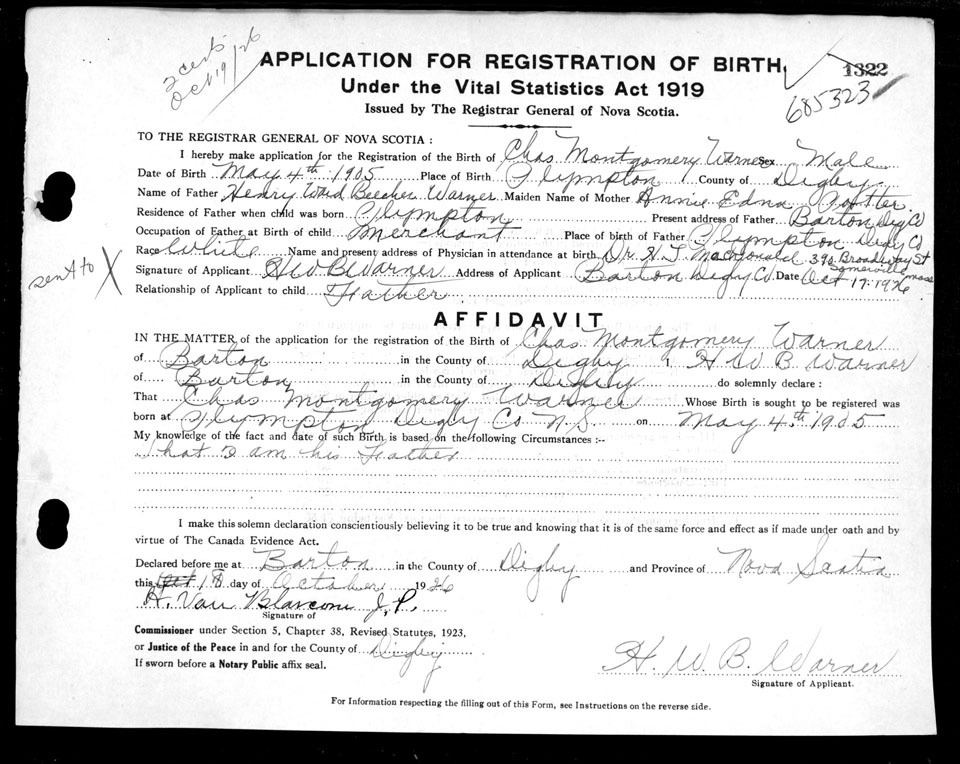 2 certs
Oct 19/26
APPLICATION FOR REGISTRATION OF BIRTH
1322
685323
Under the Vital Statistics Act 1919
Issued by The Registrar General of Nova Scotia.
TO THE REGISTRAR GENERAL OF NOVA SCOTIA :
I hereby make application for the Registration of the Birth of Chas Montgomery Warner Sex Male
Date of Birth May 4th 1905 Place of Birth Plympton County of Digby
Name of Father Henry Ward Beecher Warner Maiden Name of Mother Annie Edna Potter
Residence of Father when child was born Plympton Present address of Father Barton Dig Co
Occupation of Father at Birth of child Merchant Place of birth of Father Plympton Digby Co
Race White Name and present address of Physician in attendance at birth Dr. H. L. MacDonald 390 Broadway St
Somerville Mass
sent to X
Signature of Applicant H W B Warner Address of Applicant Barton Digby Co. Date Oct 17. 1926
Relationship of Applicant to child Father
AFFIDAVIT
IN THE MATTER of the application for the registration of the Birth of Chas Montgomery Warner
of Barton in the County of Digby I, H W B Warner
of Barton in the County of Digby do solemnly declare :
That Chas Montgomery Warner Whose Birth is sought to be registered was
born at Plympton Digby Co N.S. on May 4.th 1905
My knowledge of the fact and date of such Birth is based on the following Circumstances :--
That I am his Father
I make this solemn declaration conscientiously believing it to be true and knowing that it is of the same force and effect as if made under oath and by
virtue of The Canada Evidence Act.
Declared before me at Barton in the County of Digby and Province of Nova Scotia
this 18 day of October 1926
H. Van Blarcom J. P.
Signature of
Commissioner under Section 5, Chapter 38, Revised Statutes, 1923,
or Justice of the Peace in and for the County of Digby
If sworn before a Notary Public affix seal.
H. W. B. Warner
Signature of Applicant.
For Information respecting the filling out of this Form, see Instructions on the reverse side.